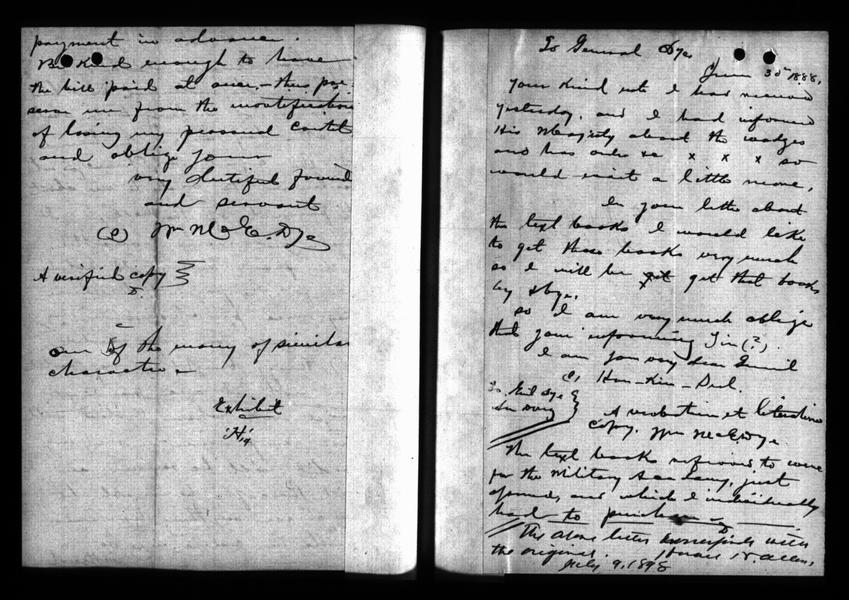 payment in advance.
Be kind enough to have
the bill paid at once, - thus pre-
serve me from the mortification
of losing my personal credit
and oblige yours
very dutiful friend
and servant
(s) Wm McE. Dye
A verified copy
D.
one of the many of similar
character -
Exhibit
"H"
To General Dye
June 30 1888.
Your kind note I has received
yesterday, and I had informed
His Majesty about the wadges
and has order x x x so
would wait a little more,
In your letter about
the text books I would like
to get those books very much
so I will be get that books
by & bye,
so I am very much oblige
that your informing Sir (?)
I am your very dear General
(s) Hon-Kin-Dul.
To Genl Dye
A verbatim et literatim
copy. Wm McE. Dye.
The text books referred to were
for the Military Academy, just
opened, and which I individually
had to purchase
D
The above letter corresponds with
the original. Horace N. Allen,
July 9, 1898